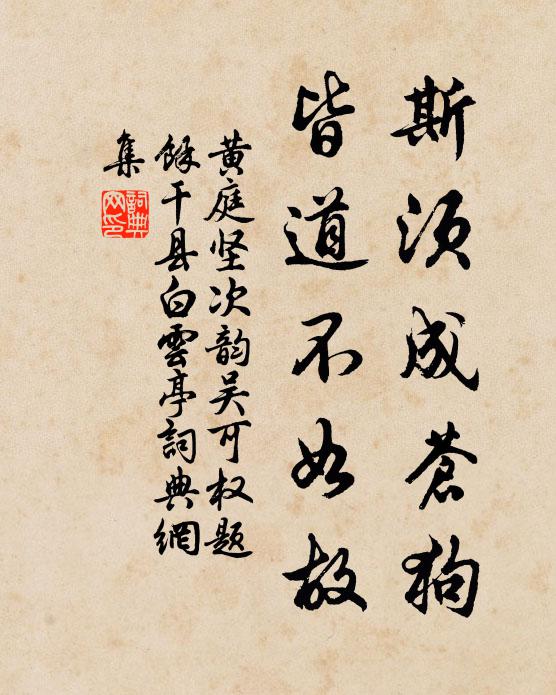 斯须成苍狗
皆道不如故
黄庭坚次韵吴可权题
馀干县白雲亭詞典網
集
詞典
网印